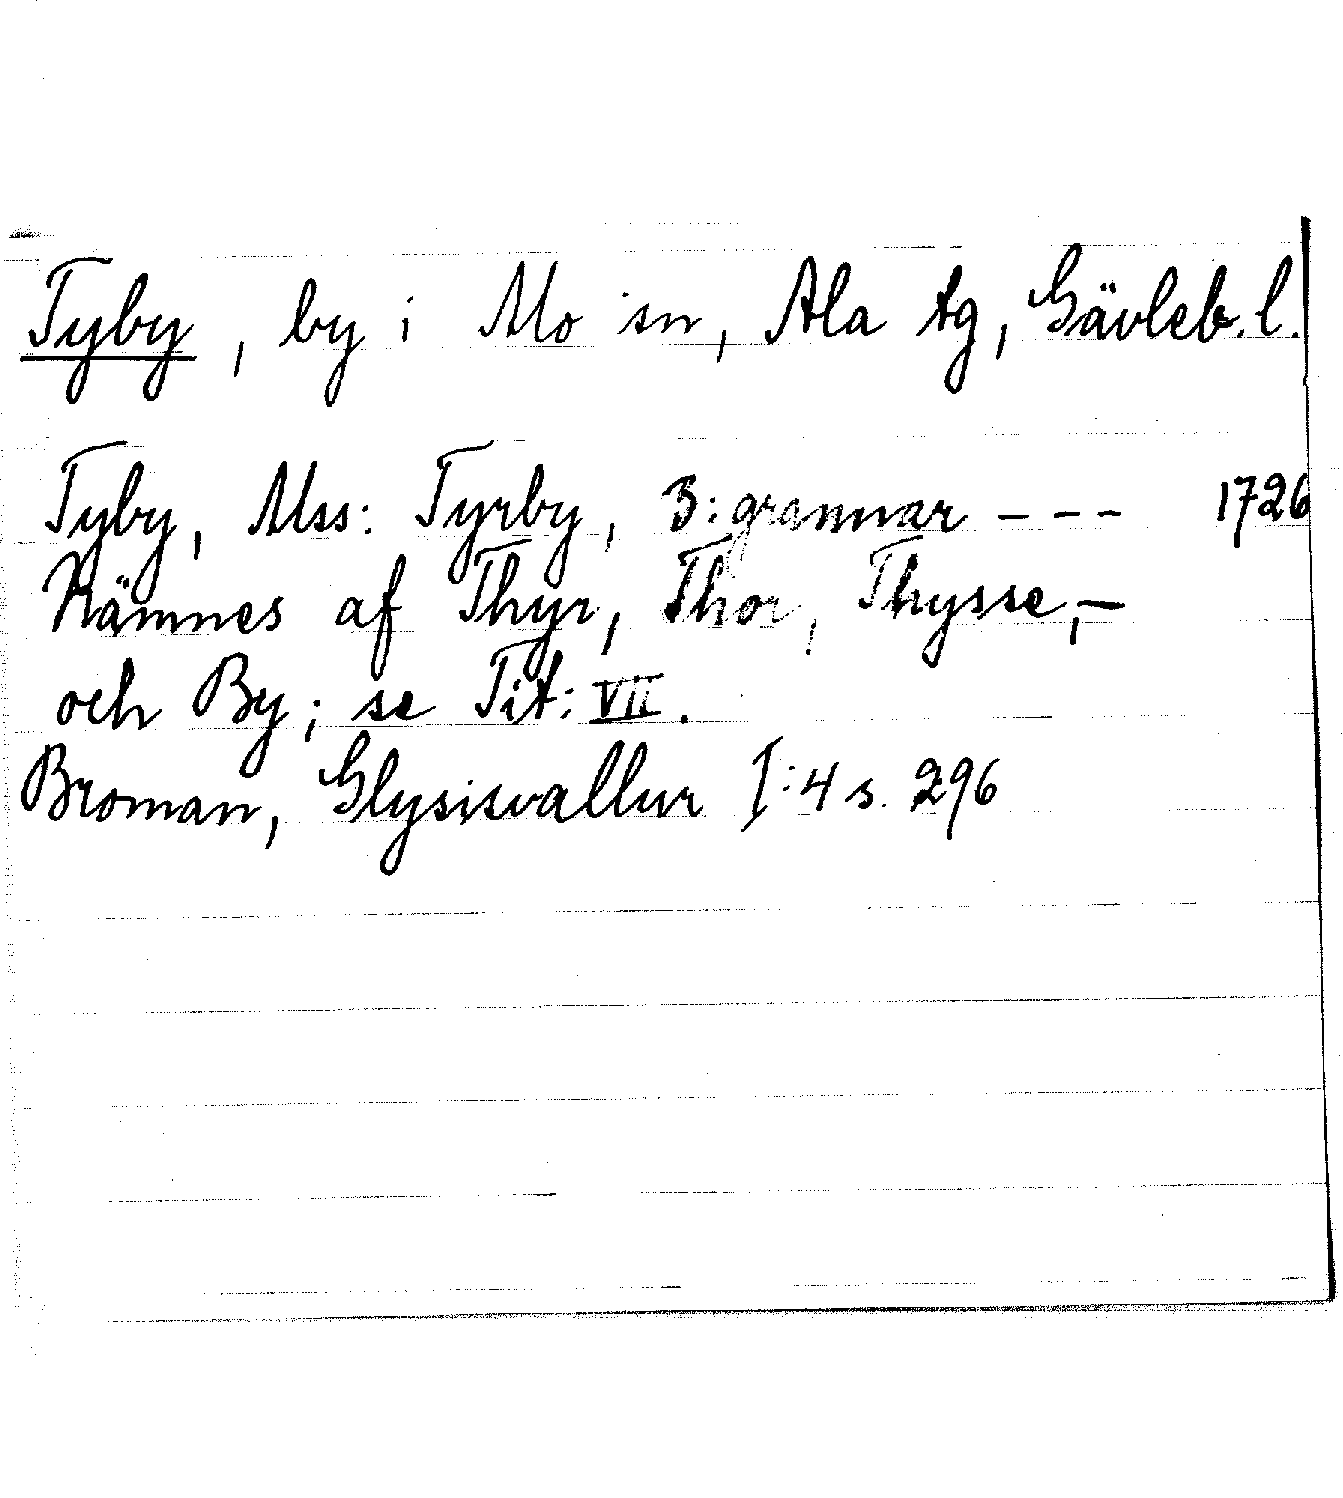 Tyby, by i Mo sn, Ala tg, Gävleb. l.
Tyby, Mss: Tyrby, 3: grannar - - - 1726
Nämnes af Thyr, Thor, Thysse,-
och By; se Tit: VII.
Broman, Glysisvallur I:4 s. 296